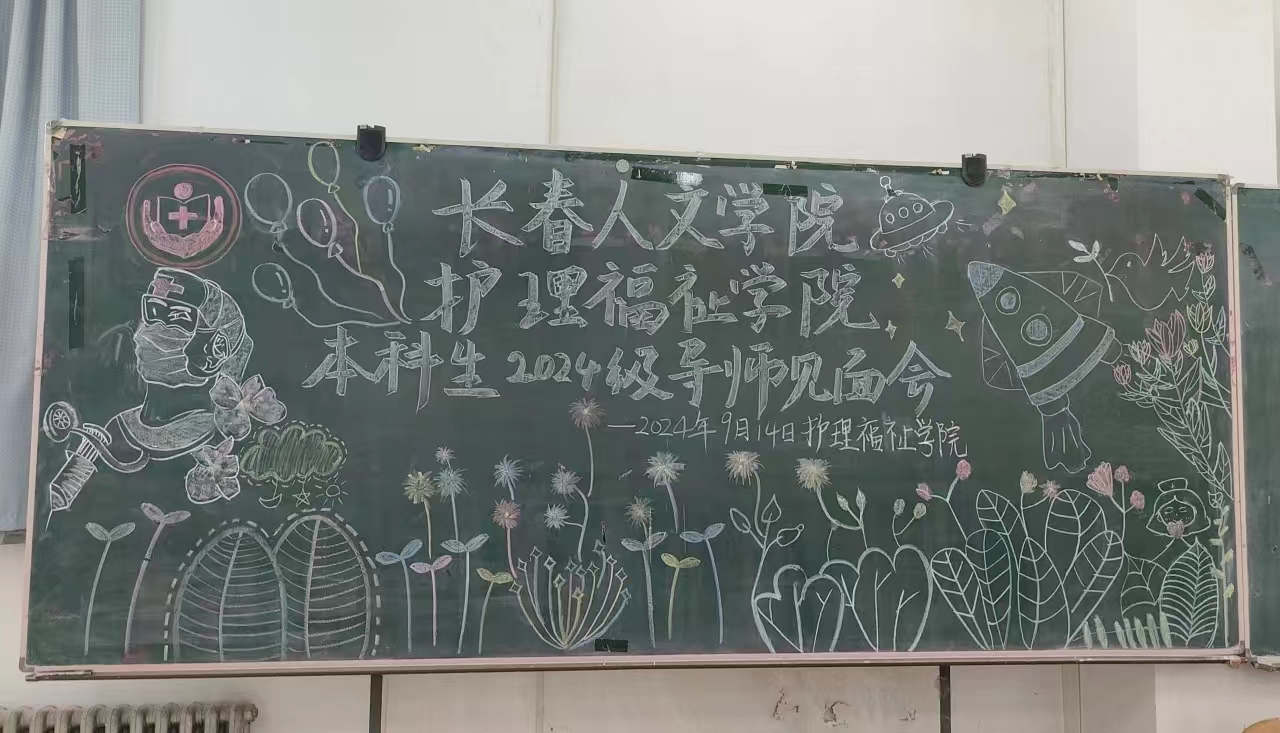 长春人文学院
护理福祉学院
本科生2024级导师见面会
—2024年9月14日护理福祉学院